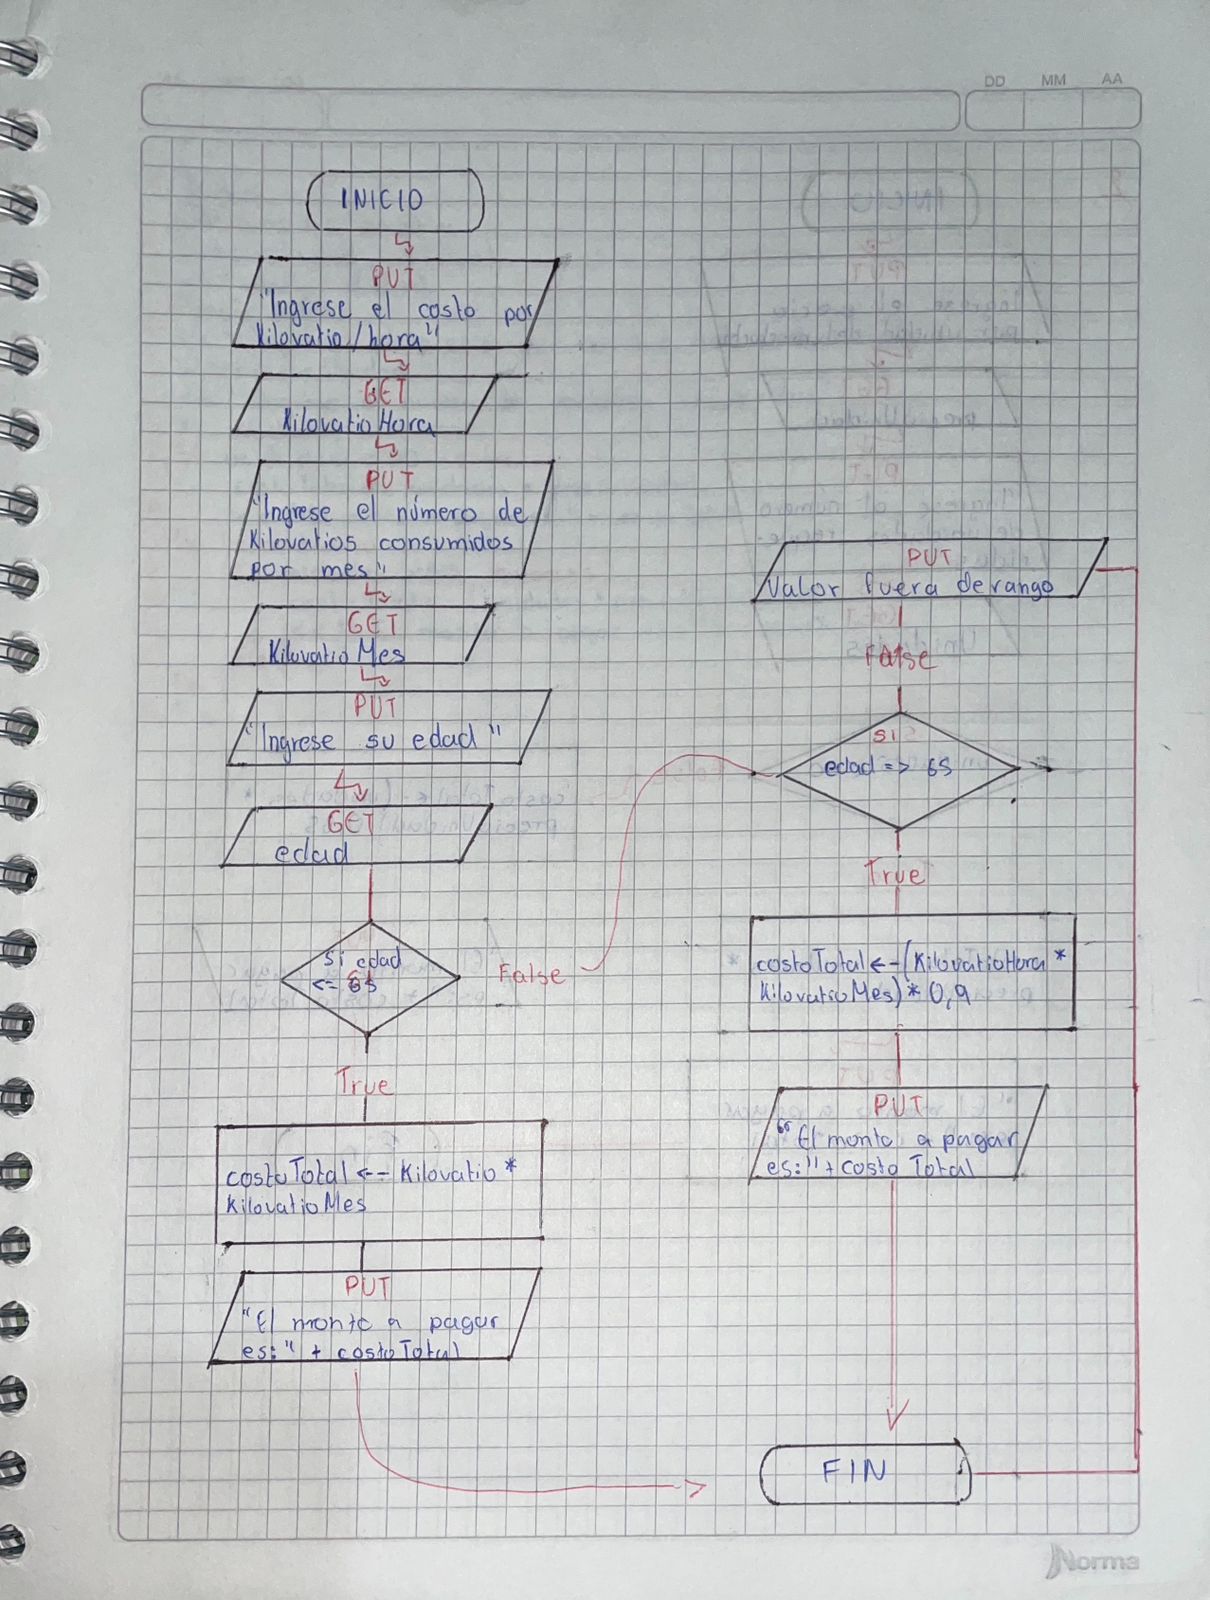 DD MM AA
INICIO
PUT
"Ingrese el costo por
Kilovatio/hora"
GET
KilovatioHora
PUT
"Ingrese el número de
Kilovatios consumidos
por mes"
GET
KilovatioMes
PUT
"Ingrese su edad"
GET
edad
Si edad
<=
False
True
costoTotal <-- Kilovatio *
KilovatioMes
PUT
"El monto a pagar
es:" + costoTotal
PUT
Valor fuera de rango
False
si
edad => 65
True
costoTotal <-- (KilovatioHora *
KilovatioMes) * 0,9
PUT
"El monto a pagar
es:" + costo Total
FIN
Norma